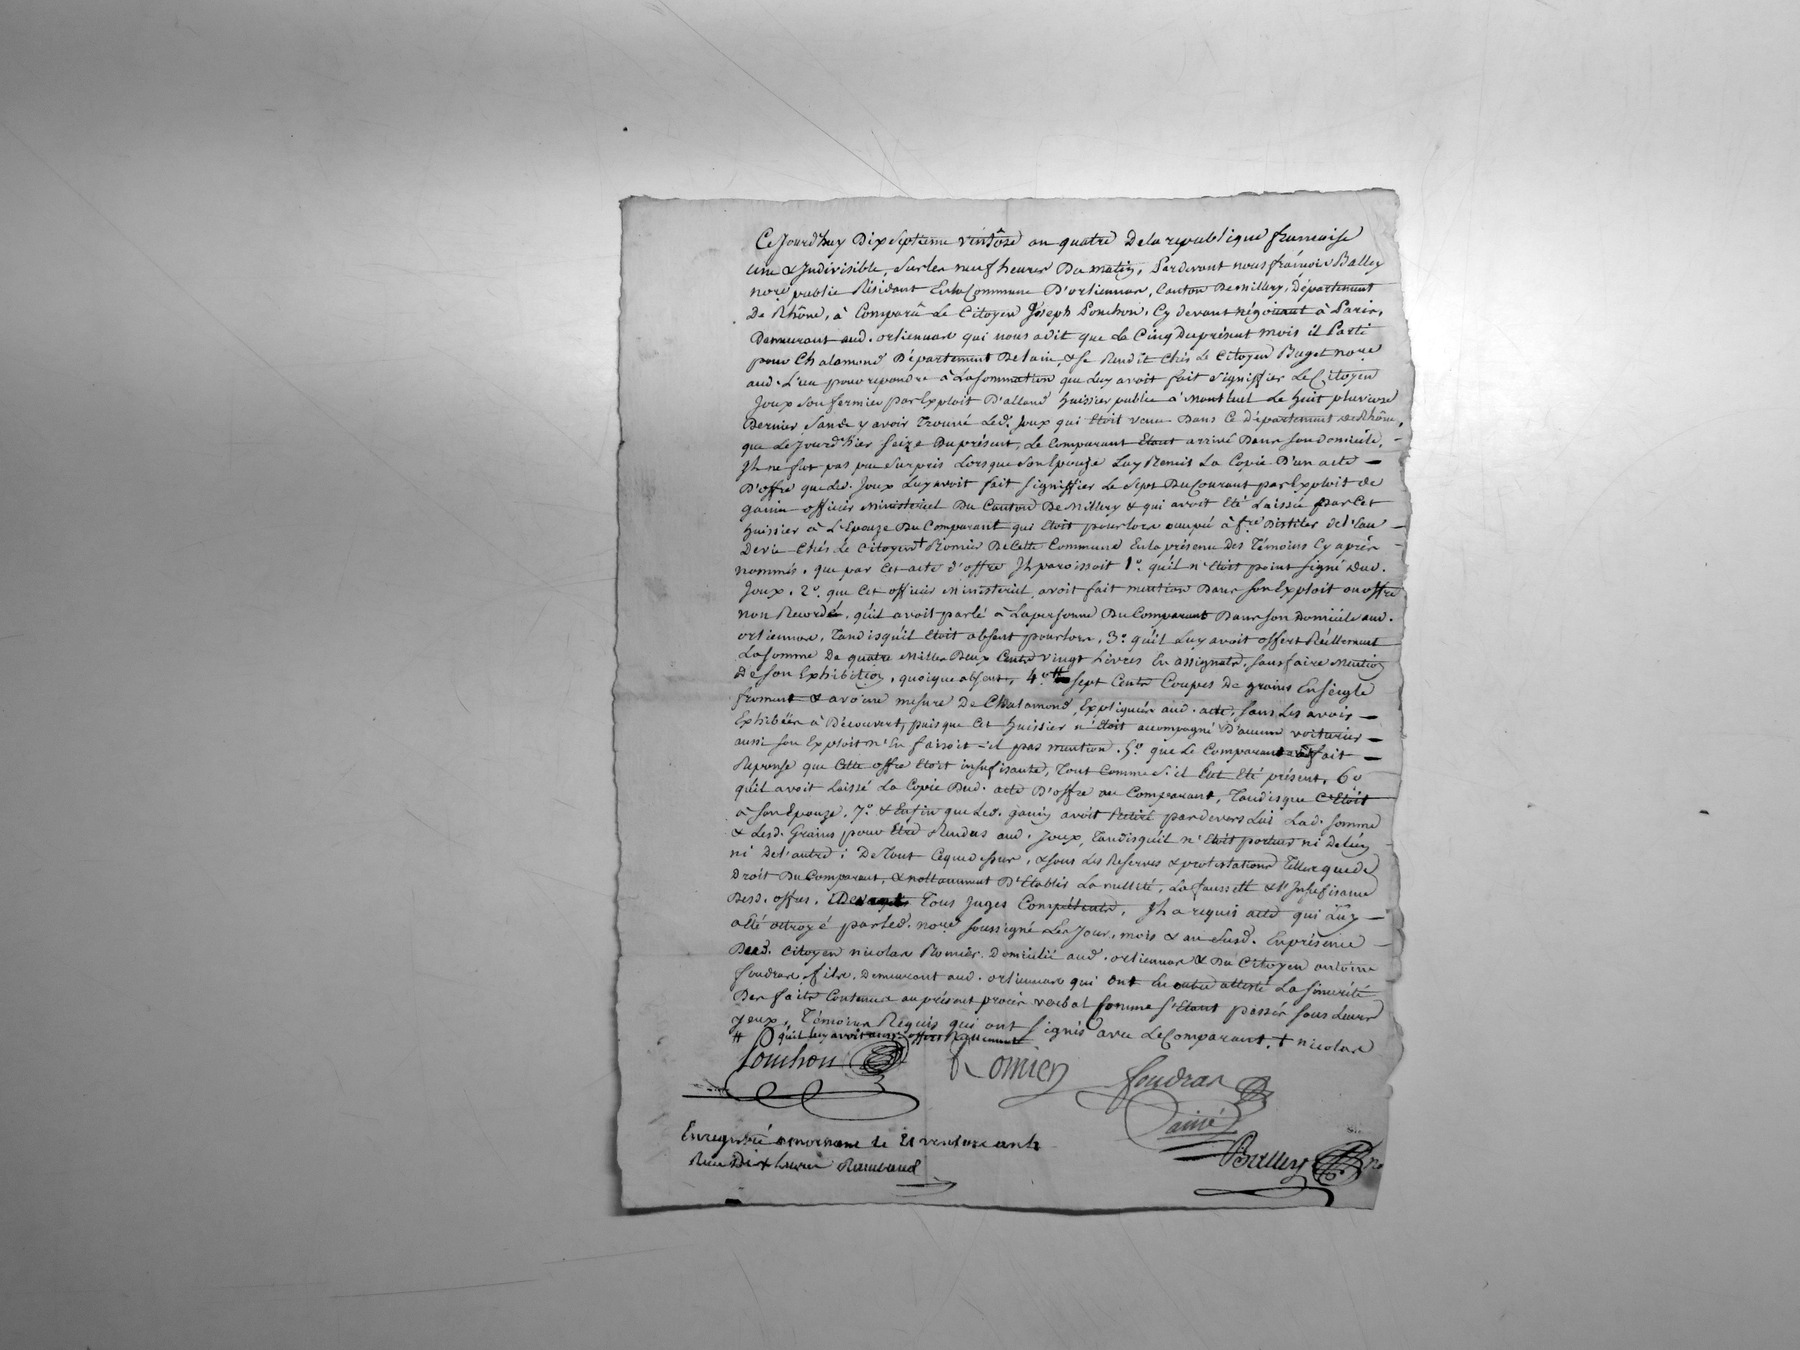 Ce Jourd'huy Dix Septieme ventôse an quatre De la republique francaise
une & Indivisible, Sur les neuf heures Du matin, Pardevant nous françois Balley
nore public Résidant En la Commune D'orliennas, Canton De millery, Département
De Rhône, à Comparû Le Citoyen Joseph Souchon, Cy devant négociant à Paris,
Demeurant aud. orliennas qui nous a dit que Le Cinq Du présent mois il Partit
pour Chalamond Département De lain, & se Rendit Chés Le Citoyen Buget nore
aud. Lieu pour repondre à La Sommation que Luy avoit fait Signiffier Le Citoyen
Joux Son fermier par Exploit D'alland huissier public à Montluel Le huit pluviose
Dernier, Sans y avoir Trouvé Led. Joux qui Etoit venu Dans Ce Département de Rhône,
que Le Jourd'hier Seize Du présent, Le Comparant Etant arrivé Dans Son Domicile,
Il ne fut pas peu Surpris Lorsque Son Epouze Luy Remit La Copie D'un acte
D'offre que Led. Joux Luy avoit fait Signiffier Le Sept Du Courant par Exploit de
ganin officier Ministeriel Du Canton De Millery & qui avoit Eté Laissé par Cet
huissier à L'Epouze Du Comparant qui Etoit pour lors occupé à fre Distiler de l'Eau
De vie Chés Le Citoyen + Romier De Cette Commune En la présence Des Témoins Cy après
nommés, que par Cet acte d'offre Il paroissoit 1o. qu'il n'Etoit point Signé Dud.
Joux. 2o. que Cet officier Ministeriel avoit fait mention Dans Son Exploit ou offre
non Recordé, qu'il avoit parlé à La personne Du Comparant Dans Son Domicile aud.
orliennas, Tandis qu'il Etoit absent pour lors, 3o. qu'il Luy avoit offert Réellement
La Somme De quatre Milles Deux Cents vingt Livres En assignats, Sans faire Mention
De Son Exhibition, quoique absent, 4o. # Sept Cents Coupes De grains En Seigle
froment & avoine mesure De Chalamond, Expliqués aud. acte, Sans Les avoir
Exhibées à Découvert, puisque Cet huissier n'Etoit accompagné D'aucun voiturier
aussi Son Exploit n'En faisoit-il pas mention. 5o. que Le Comparant avoit fait
Réponse que Cette offre Etoit insufisante, Tout Comme S'il Eut Eté présent, 6o
qu'il avoit Laissé La Copie Dud. acte D'offre au Comparant, Tandis que C'Etoit
à Son Epouze. 7o. & Enfin que Led. ganin avoit Retiré pardevers Lui Lad. Somme
& Lesd. Grains pour Etre Rendus aud. Joux, Tandis qu'il n'Etoit porteur ni De L'un
ni De l'autre; De Tout Ce que dessus, & Sous Les Réserves & protestations Telles que de
Droit Du Comparant, & nottamment D'Etablir La nullité, La fausseté & l'Insufisance
Desd. offres, Devant Tous Juges Compétents, Il a réquis acte qui Luy
a Eté octroyé par Led. nore Soussigné Les Jour, mois & an Susd. En présence
Dud. Citoyen nicolas Romier Domicilié aud. orliennas & Du Citoyen antoine
foudras fils, Demeurant aud. orliennas qui ont En outre attesté La Sincérité
Des faits Contenus au présent procès verbal Comme S'Etant passés Sous Leurs
yeux, Témoins Requis qui ont Signés avec Le Comparant. + nicolas
# qu'il luy avoit aussi offert Réellement
Souchon
Romier
foudras
ainé
Balley nre
Enregistré a mornant le 21 ventose an 4
Reçu Dix livres Raimbaud